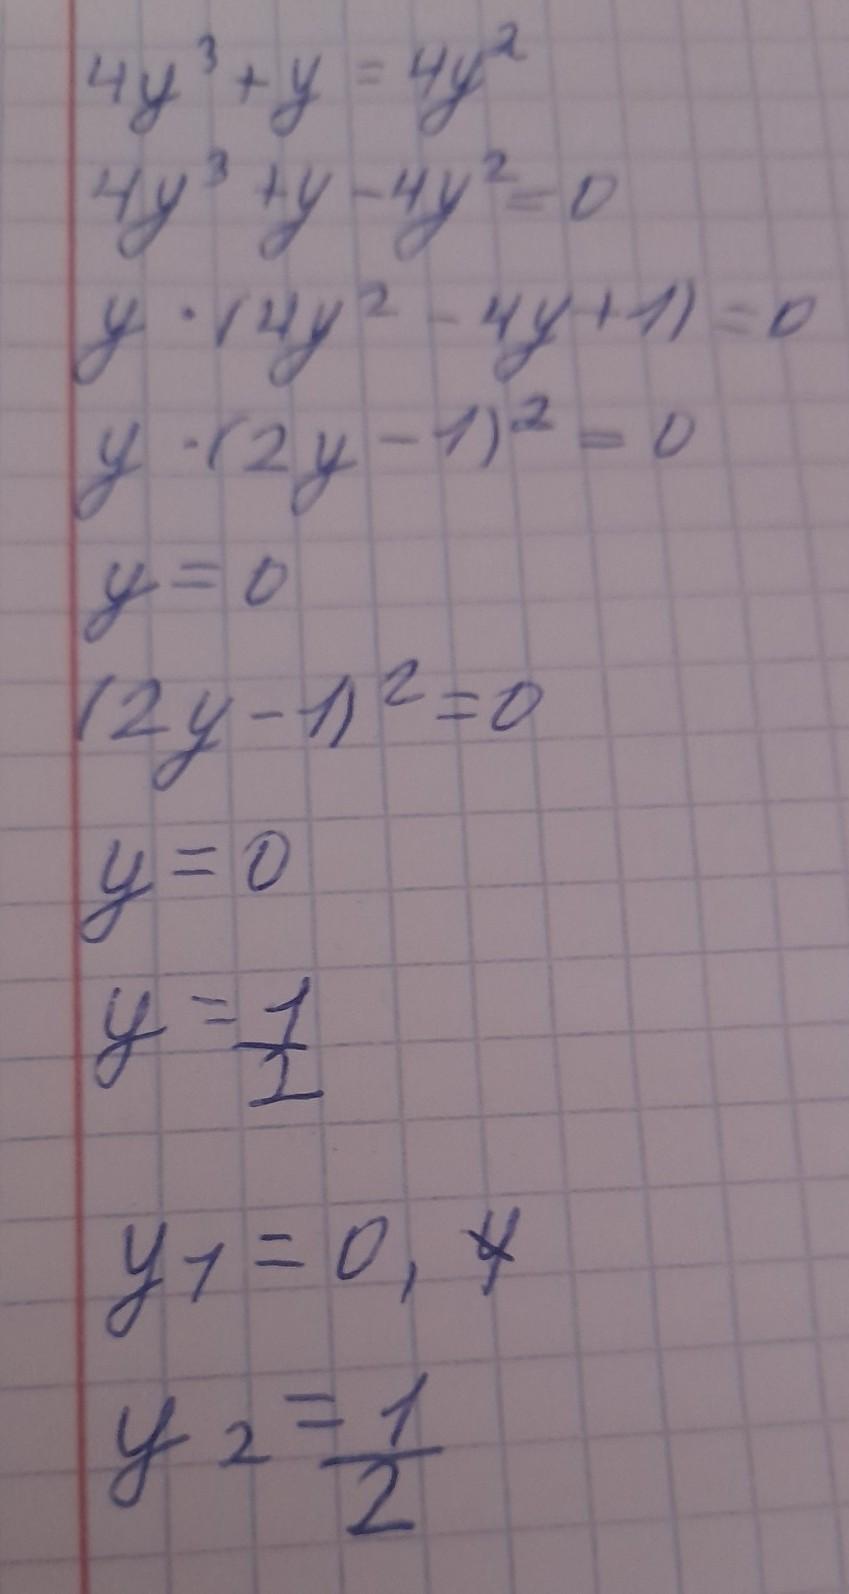 4y³ + y = 4y²
4y³ + y - 4y² = 0
y · (4y² - 4y + 1) = 0
y · (2y - 1)² = 0
y = 0
(2y - 1)² = 0
y = 0
y = 1/2
y₁ = 0,
y₂ = 1/2